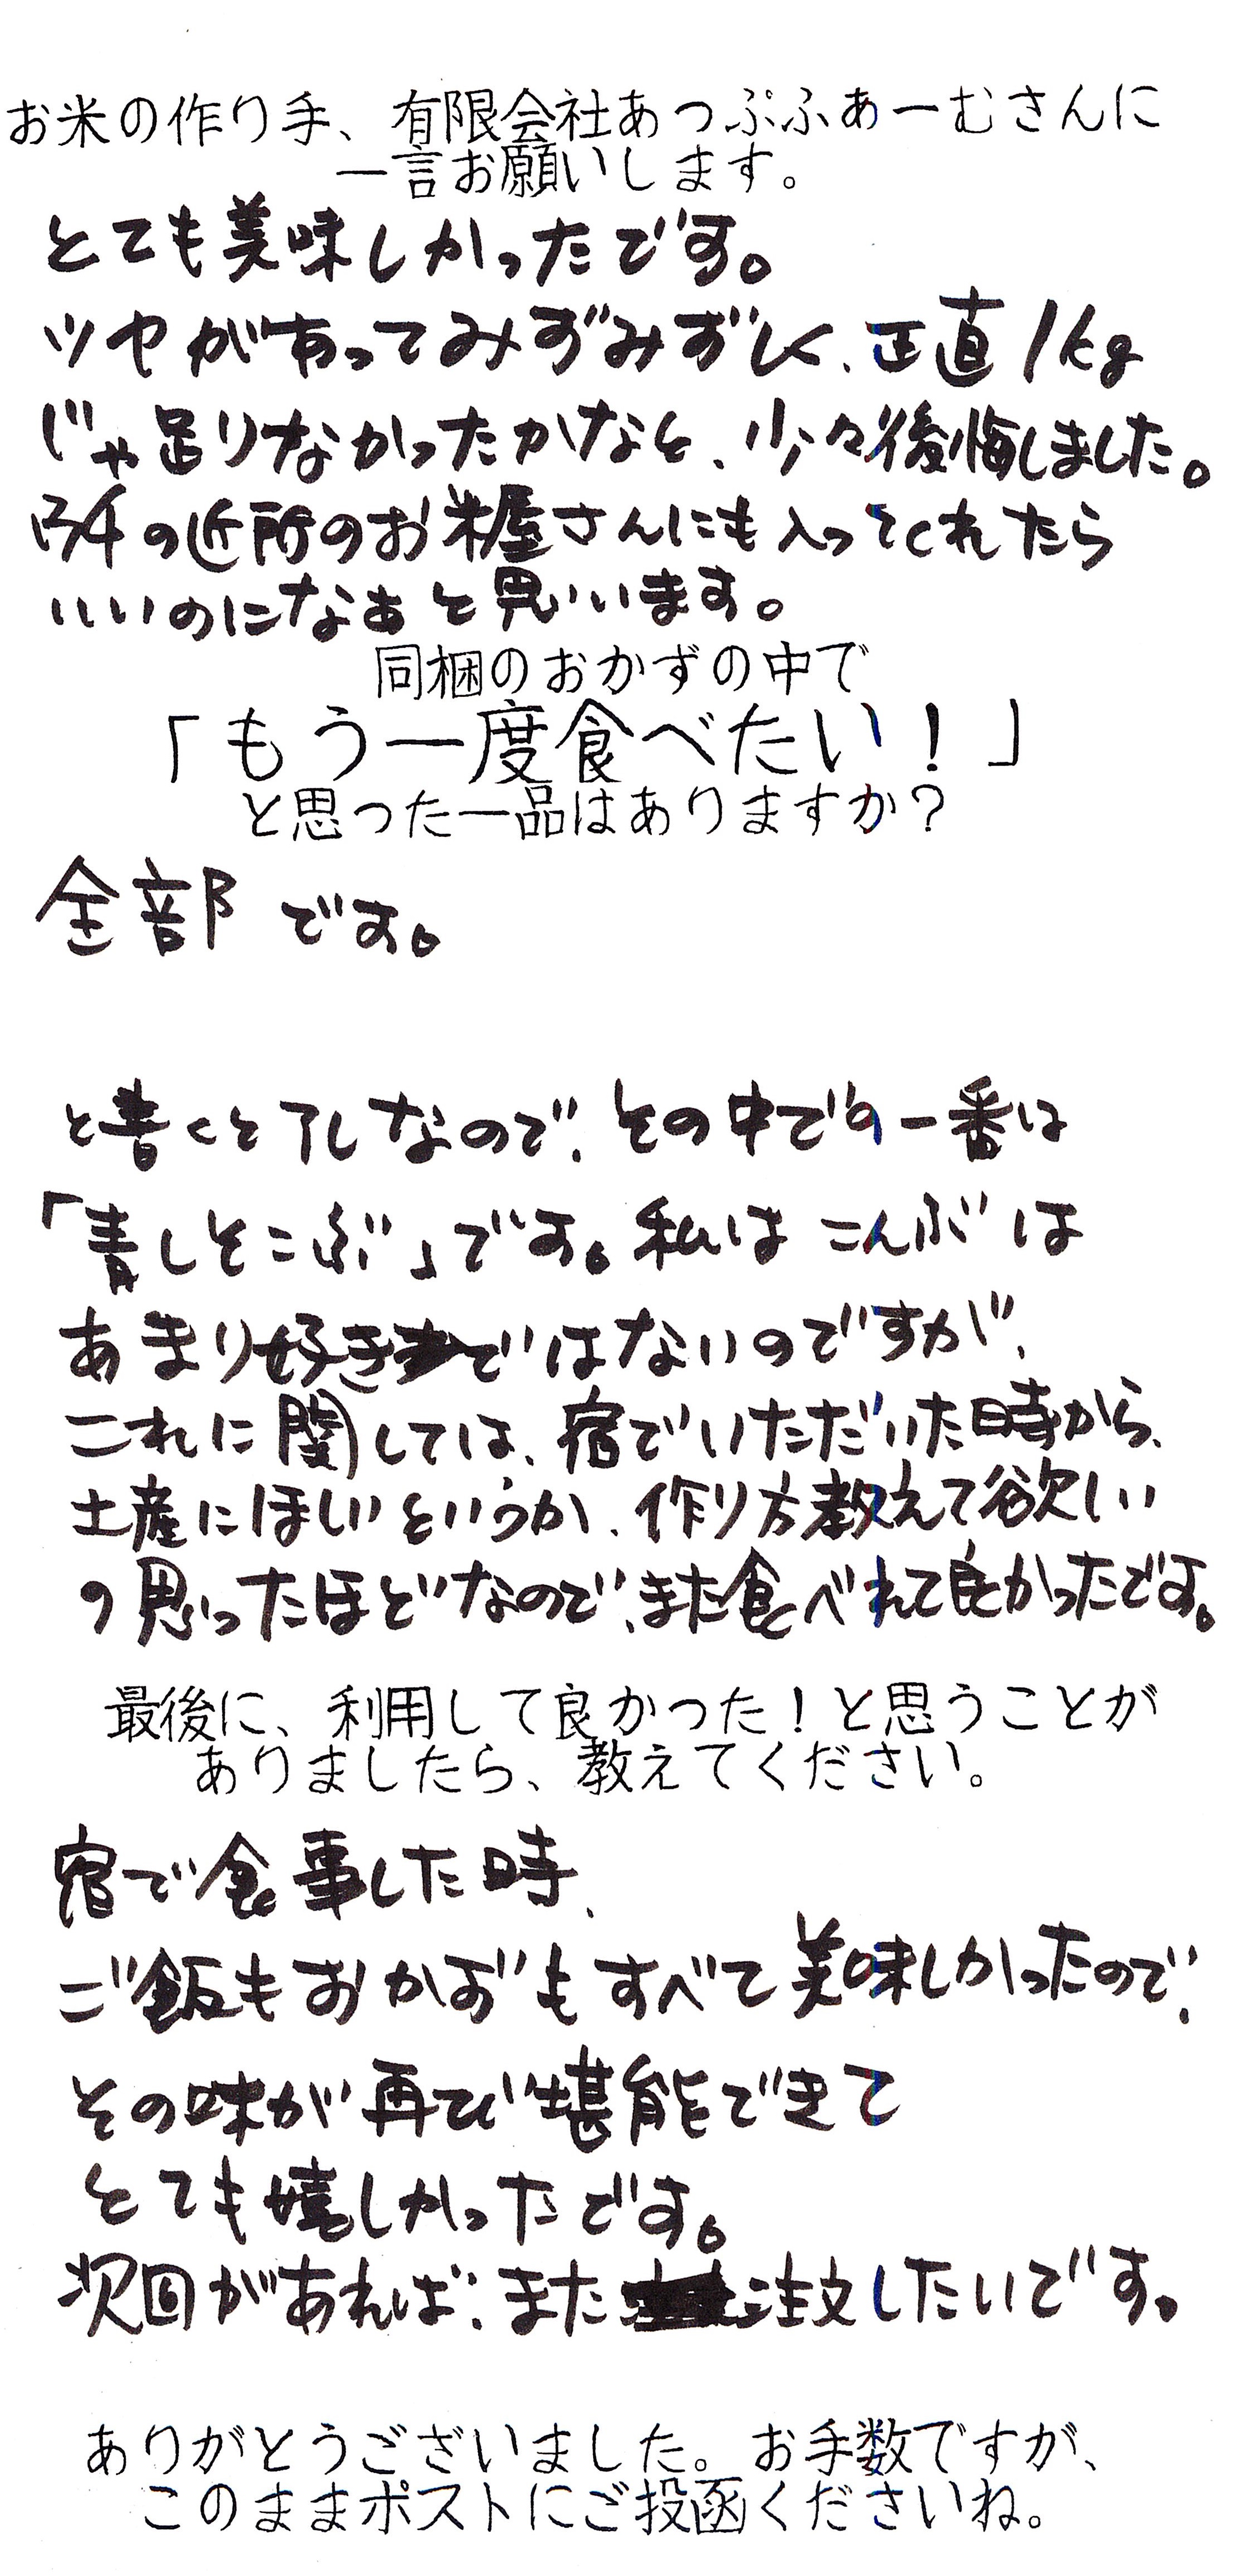 お米の作り手、有限会社あっぷふぁーむさんに
一言お願いします。
とても美味しかったです。
ツヤがあってみずみずしく、正直1kg
じゃ足りなかったかなと、少々後悔しました。
の近所のお米屋さんにも入ってくれたら
いいのになぁと思います。
同梱のおかずの中で
「もう一度食べたい！」
と思った一品はありますか？
全部です。
と書くとアレなので、その中での一番は
「青しそこぶ」です。私はこんぶは
あまり好きではないのですが、
これに関しては、宿でいただいた時から、
土産にほしいというか、作り方教えて欲しい
って思ったほどなので、また食べれて良かったです。
最後に、利用して良かった！と思うことが
ありましたら、教えてください。
宿で食事した時、
ご飯もおかずもすべて美味しかったので、
その味が再び堪能できて
とても嬉しかったです。
次回があれば、また注文したいです。
ありがとうございました。お手数ですが、
このままポストにご投函くださいね。